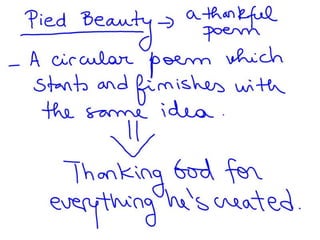 Pied Beauty → a thankful
poem
- A circular poem which
starts and finishes with
the same idea.
⇓
Thanking God for
everything he's created.